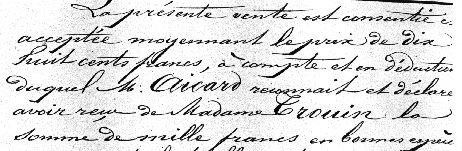 La présente vente est consentie e
acceptée moyennant le prix de dix
huit cents francs, à compte et en déduction
duquel M. Aicard reconnait et déclare
avoir reçu de Madame Trouin la
somme de mille francs en bonnes espèce